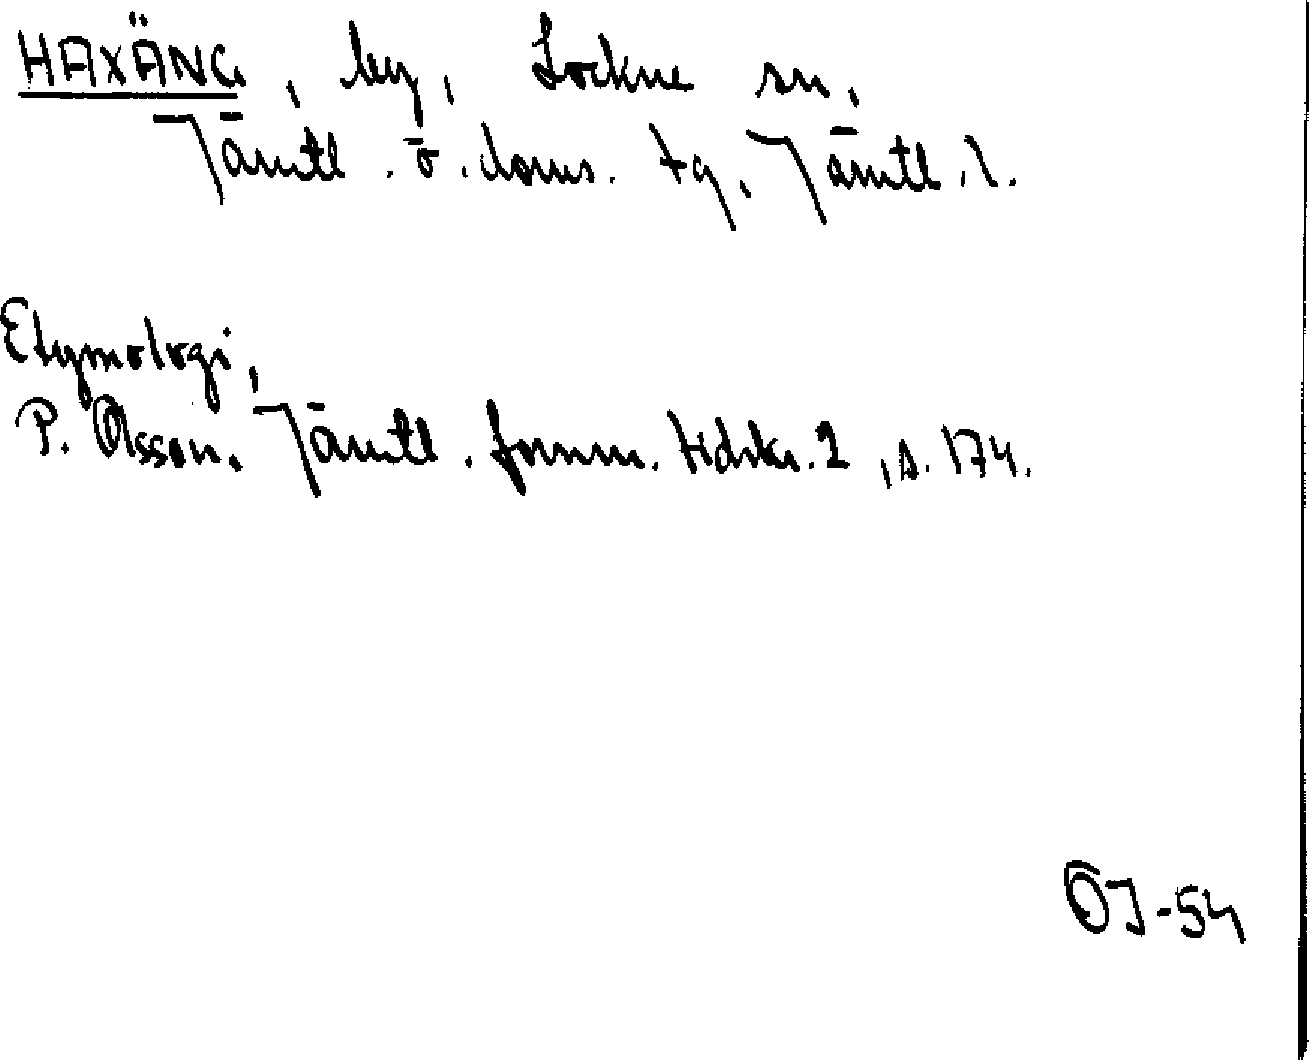 HAXÄNG, by, Lockne sn,
Jämtl. ö. doms. tg, Jämtl. l.
Etymologi,
P. Olsson, Jämtl. fornm. tidskr. 2, s. 174.
ÖJ-54